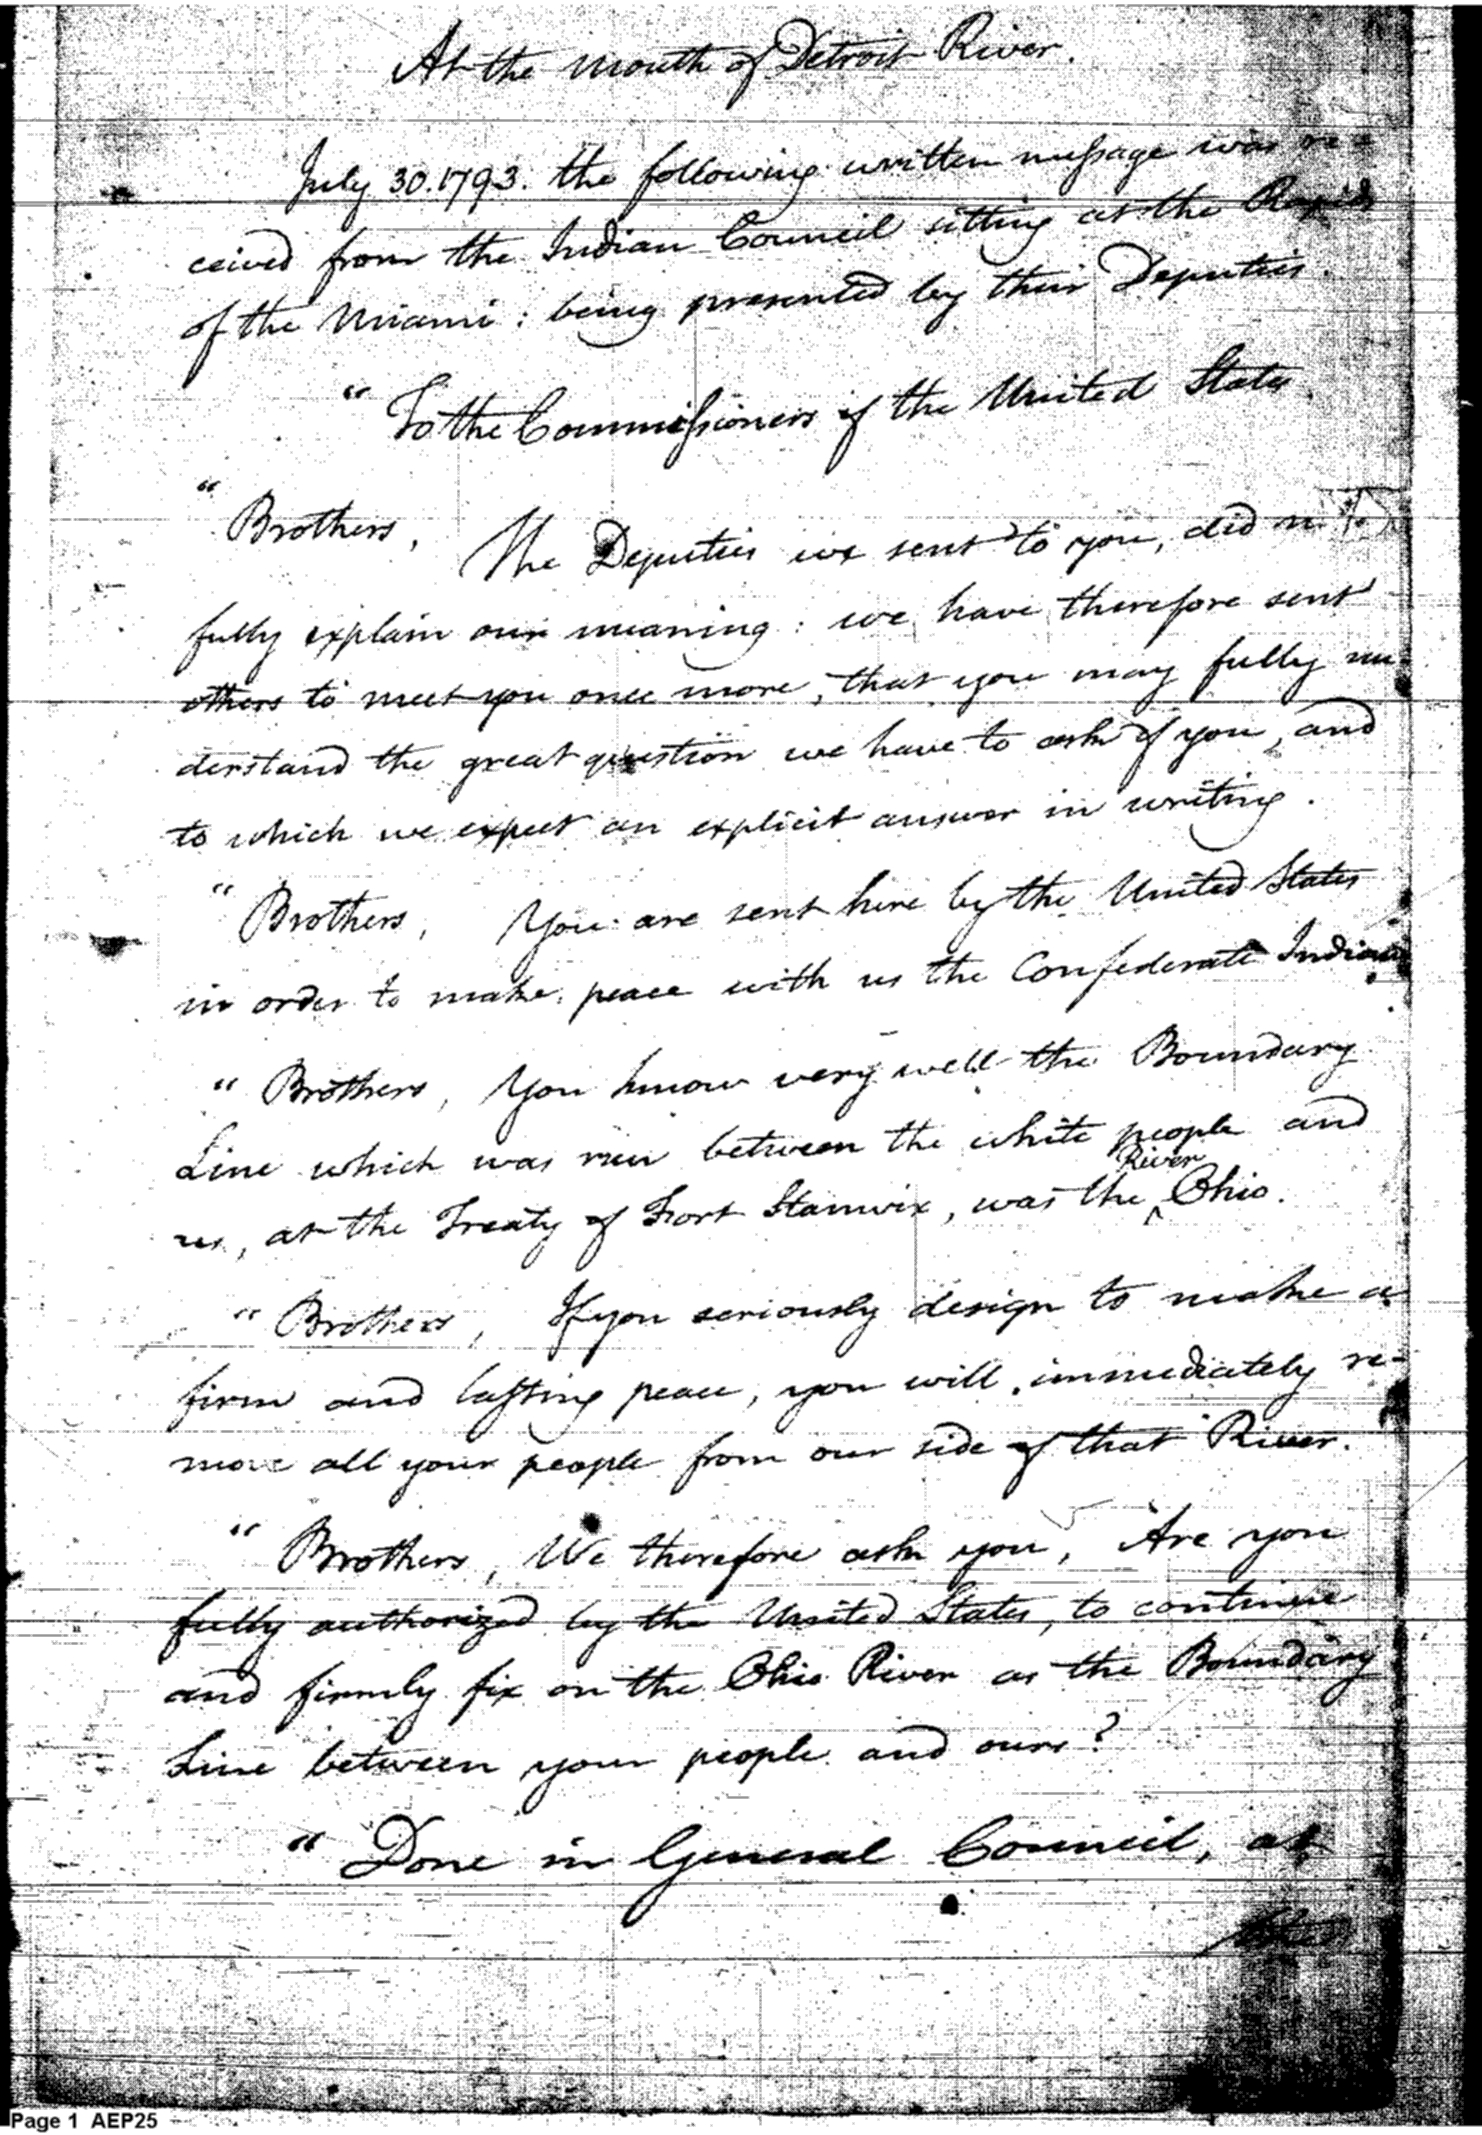 At the mouth of Detroit River.
July 30. 1793. the following written message was re=
ceived from the Indian Council sitting at the Rapids
of the Miami: being presented by their Deputies.
"To the Commissioners of the United States.
"Brothers, The Deputies we sent to you, did not
fully explain our meaning: we have therefore sent
others to meet you once more, that you may fully un-
derstand the great question we have to ask of you, and
to which we expect an explicit answer in writing.
"Brothers, You are sent here by the United States
in order to make peace with us the Confederate Indians.
"Brothers, You know very well the Boundary
Line which was run between the white people and
us, at the Treaty of Fort Stanwix, was the ^River Ohio.
"Brothers, If you seriously design to make a
firm and lasting peace, you will immediately re-
move all your people from our side of that River.
"Brothers, We therefore ask you, Are you
fully authorized by the United States, to continue
and firmly fix on the Ohio River as the Boundary
Line between your people and ours?
"Done in General Council, at
Page 1 AEP25